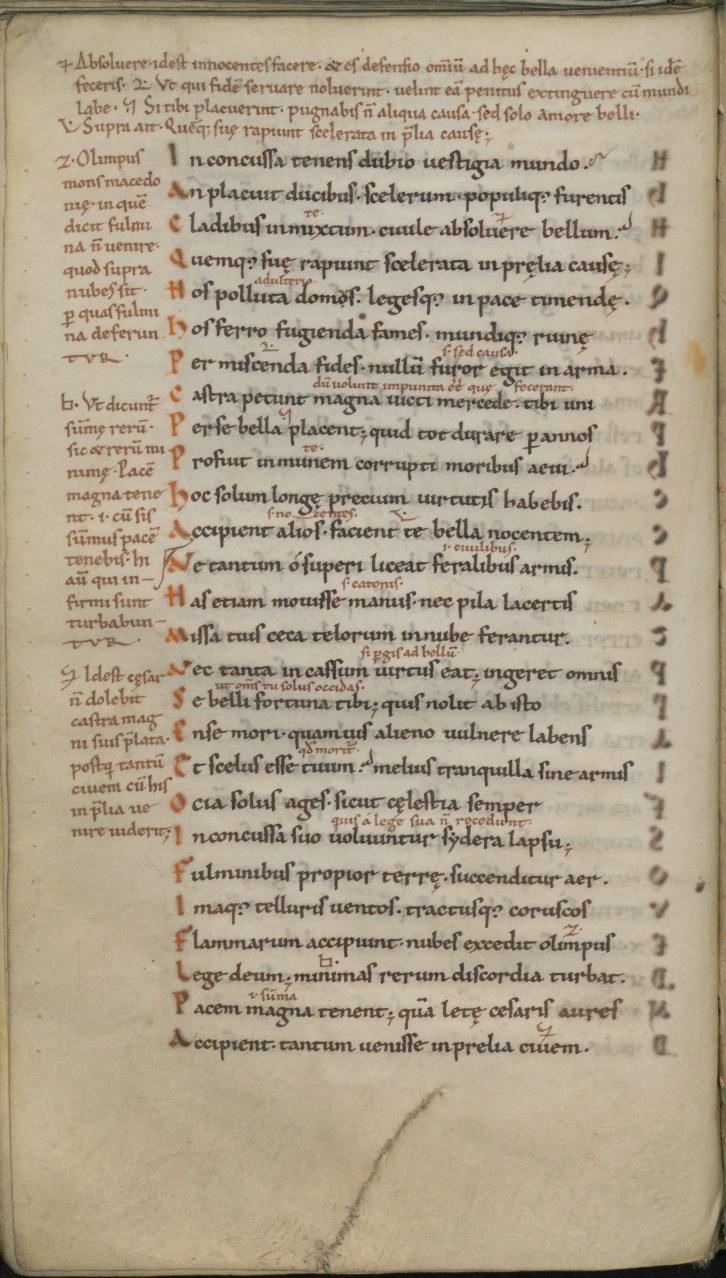 Absoluere · idest innocentes facere · & es defensio omniū ad hęc bella uenientiū · si idē
feceris · Vt qui fidē seruare noluerint · uelint eā penitus extinguere cū mundi
labe · Si tibi placuerint · pugnabis n̄ aliqua causa · sed solo amore belli ·
Supra ait · Quęq; suę rapiunt scelerata in p̄lia causę ;
z · Olimpus
mons macedo
nię · in quē
dicit fulmi
na n̄ uenire ·
quod supra
nubes sit ·
p quas fulmi
na deferun
TVR ·
b · Vt dicunt̄
sūmę rerū ·
sic & rerū mi
nimę · Pacē
magna tene
nt · i · cū sis
sūmus pacē
tenebis · hi
aū qui in-
firmi sunt
turbabun-
TVR ·
Idest cęsar
n̄ dolebit
castra mag
ni suis p̄lata ·
postq tantū
ciuem cū his
in p̄lia ue
nire uiderit ;
I n concussa tenens dubio uestigia mundo .
A n placuit ducibus · scelerum · populiq; furentis
te ·
C ladibus inmixtum · ciuile absoluere bellum .
Q uemq; suę rapiunt scelerata in pręlia causę ;
adultero
H os polluta domos · legesq; in pace timendę .
h os ferro fugienda fames · mundiq; ruinę
s · sed causa ·
P er miscenda fides · nullū furor egit in arma .
dū uolunt impunita eē quę fecerunt ·
C astra petunt magna uicti mercede · tibi uni
P er se bella placent ; quid tot durare p annos
te ·
P rofuit inmunem corrupti moribus aeui .
h oc solum longę precium uirtutis habebis .
s · nocentes ·
A ccipient alios · facient te bella nocentem ;
s · ciuilibus ·
N e tantum ó superi liceat feralibus armis .
s · cateris ·
H as etiam mouisse manus · nec pila lacertis
M issa tuis ceca telorum in nube ferantur .
si pgis ad bellū
N ec tanta in cassum uirtus eat ; ingeret omnis
ut om̄s tu solus occidas ·
S e belli fortuna tibi ; quis nolit ab isto
E nse mori · quamuis alieno uulnere labens
qd̄ morit̄ ·
E t scelus esse tuum . melius tranquilla sine armis
O cia solus ages · sicut cęlestia semper
quis a lege sua n̄ recedunt ·
I n concussa suo uoluuntur sydera lapsu ;
F ulminibus propior terrę · succenditur aer .
I maq; telluris uentos · tractusq; coruscos
z ·
F lammarum accipiunt · nubes excedit olimpus
b ·
L ege deum ; minimas rerum discordia turbat .
sūma
P acem magna tenent ; quā letę cesaris aures
A ccipient · tantum uenisse in prelia ciuem .